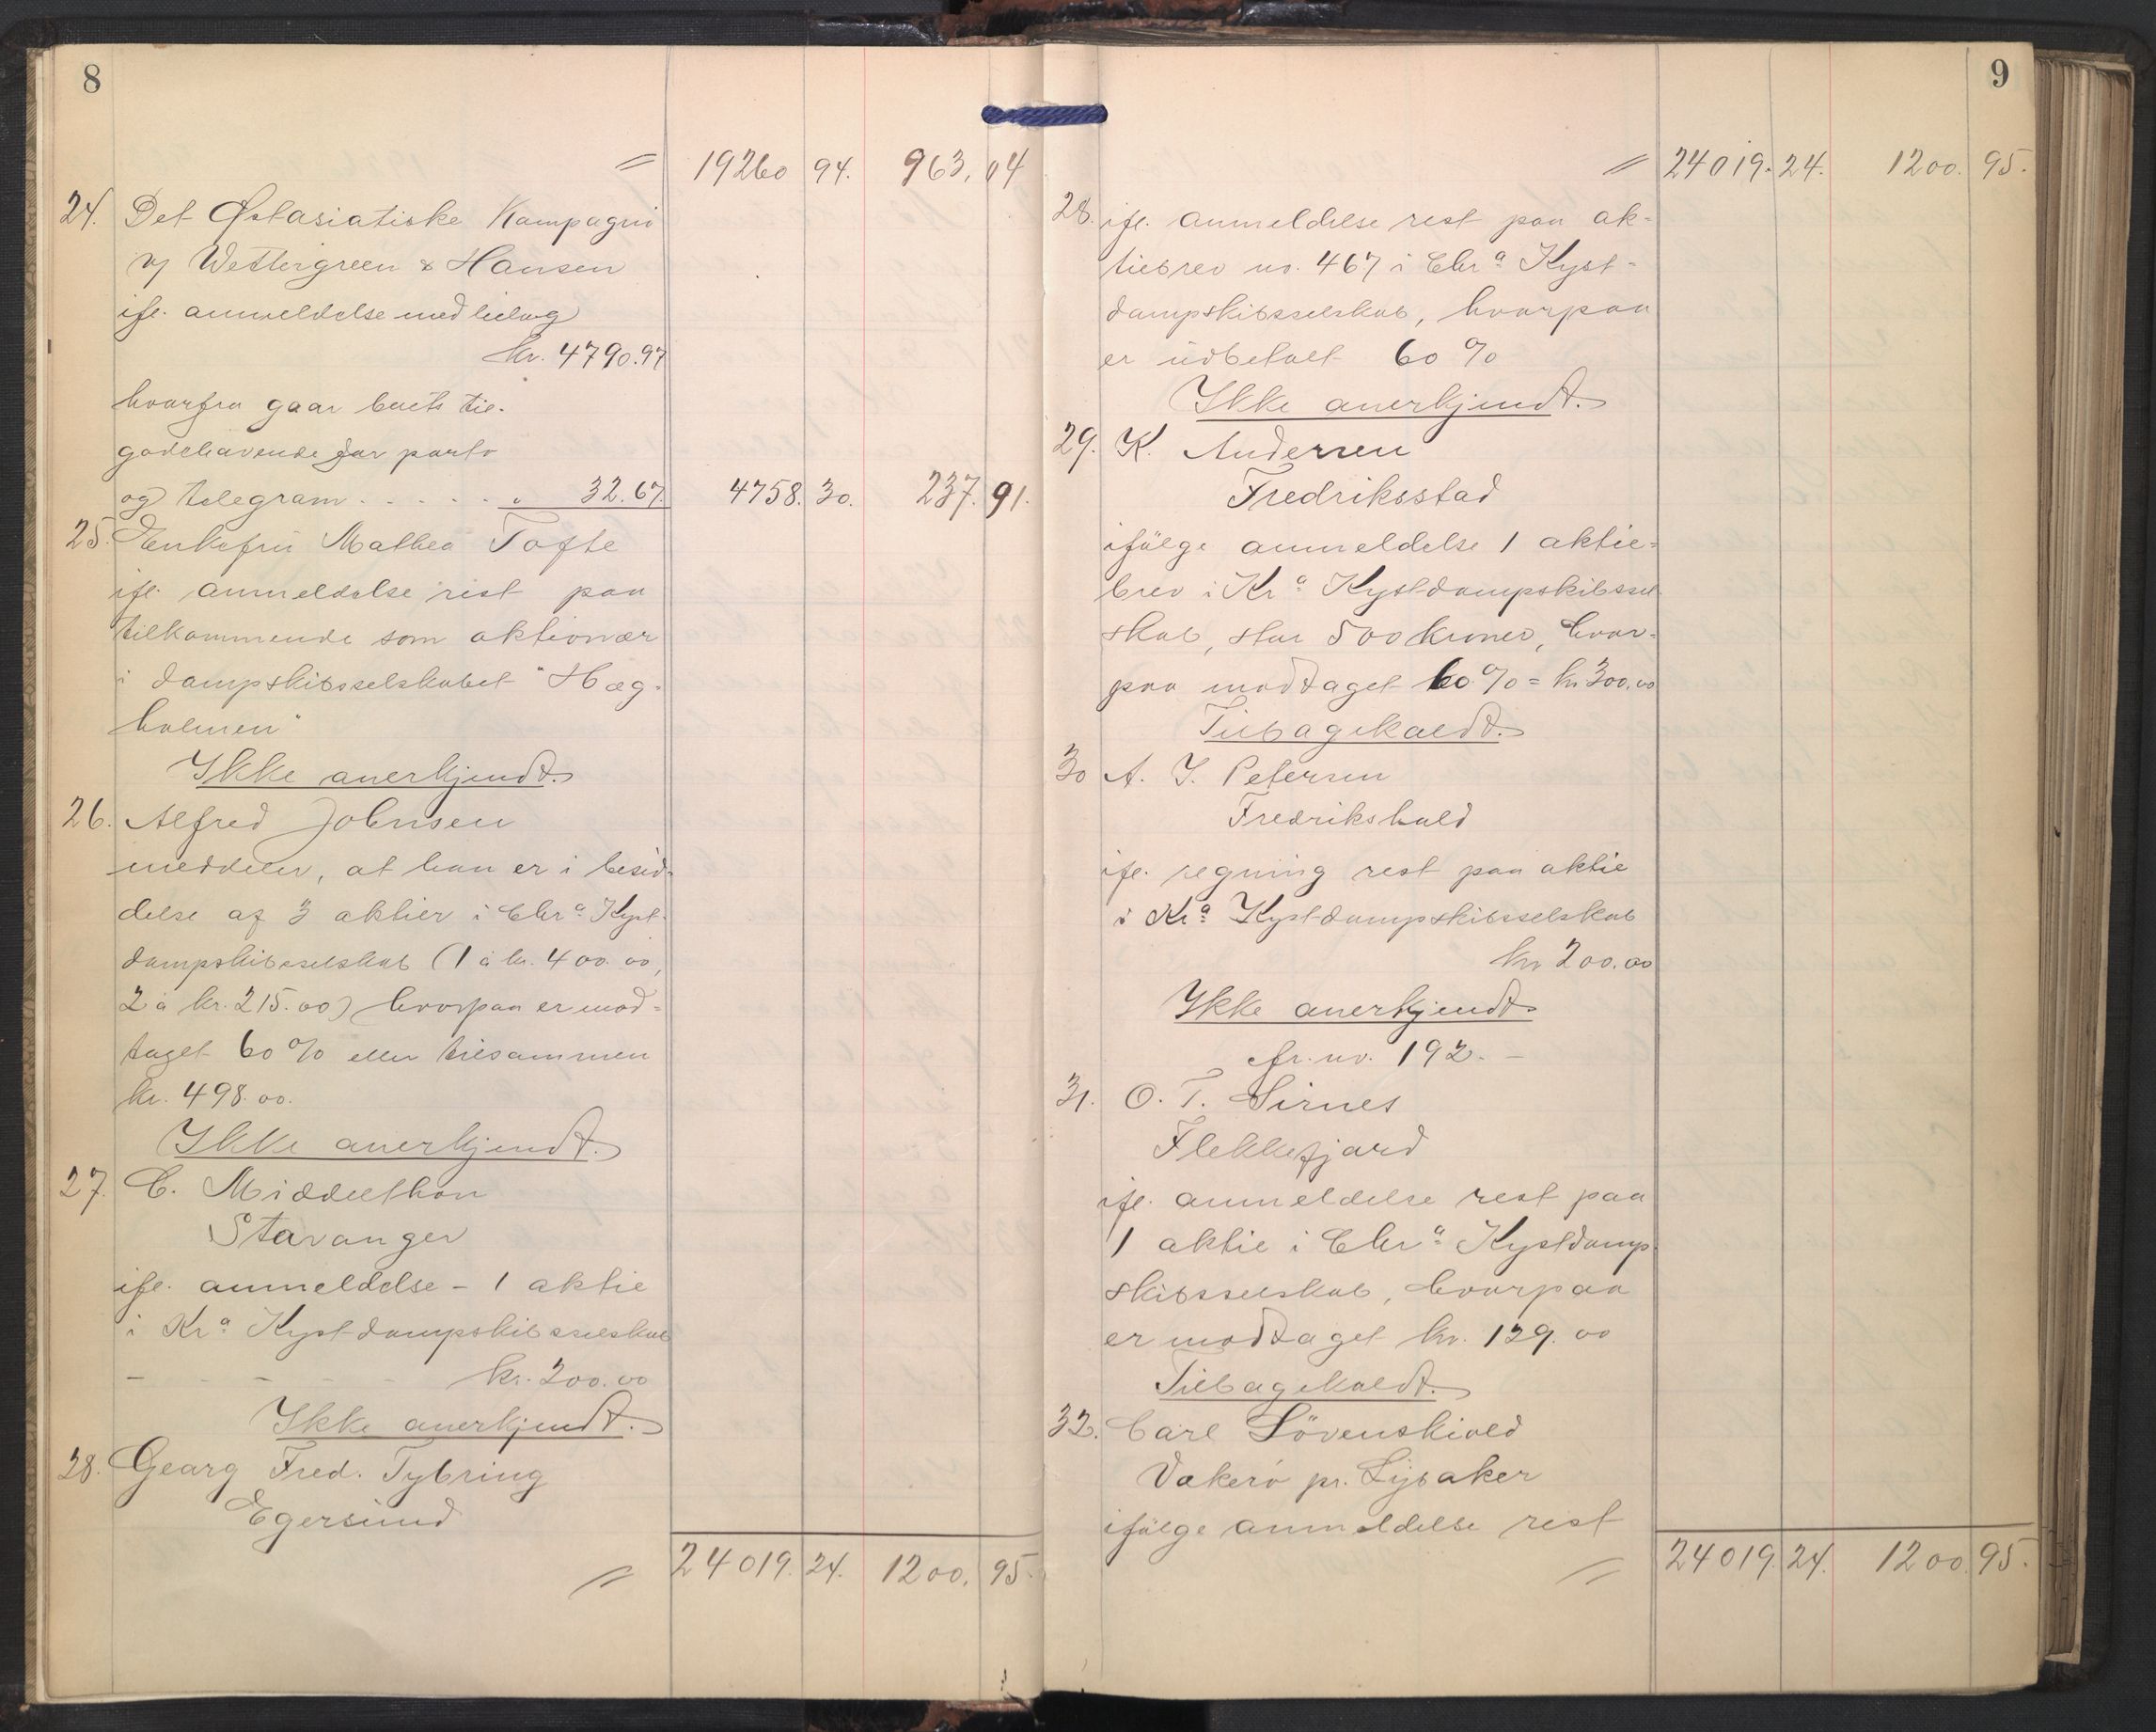 8
〃 19260 94. 963, 04
24. Det Østasiatiske Kompagni
v/ Wettergreen & Hansen
ifl. anmeldelse med bilag
kr. 4790.97
hvorfra gaar boets til-
godehavende for porto
og telegram . . . . . „ 32.67. 4758. 30. 237. 91.
25. Enkefru Mathea Tofte
ifl. anmeldelse rest paa
tilkommende som aktionær
i dampskibsselskabet "Hæg-
holmen"
Ikke anerkjendt.
26. Alfred Johnsen
meddeler, at han er i besid-
delse af 3 aktier i Chr.a Kyst-
dampskibsselskab (1 à kr. 400.00,
2 à kr. 215.00) hvorpaa er mod-
taget 60% eller tilsammen
kr. 498.00.
Ikke anerkjendt.
27. C. Middelthon
Stavanger
ifl. anmeldelse - 1 aktie
i Kr.a Kystdampskibsselskab
- - - - - - kr. 200.00
Ikke anerkjendt.
28. Georg Fred. Tybring
Egersund
〃 24019. 24. 1200. 95.
9
〃 24019. 24. 1200. 95.
28. ifl. anmeldelse rest paa ak-
tiebrev no. 467 i Chr.a Kyst-
dampskibsselskab, hvorpaa
er udbetalt 60%
Ikke anerkjendt.
29. K. Andersen
Fredriksstad
ifölge anmeldelse 1 aktie-
brev i Kr.a Kystdampskibssel
skab, stor 500 kroner, hvor-
paa modtaget 60% = kr. 300.00
Tilbagekaldt.
30 A. J. Petersen
Fredrikshald
ifl. regning rest paa aktie
i Kr.a Kystdampskibsselskab
kr 200.00
Ikke anerkjendt.
fr. no. 192. -
31. O. T. Sirnes
Flekkefjord
ifl. anmeldelse rest paa
1 aktie i Chr.a Kystdamp-
skibsselskab, hvorpaa
er modtaget kr. 129.00
Tilbagekaldt.
32. Carl Lövenskiold
Vakerö pr. Lysaker
ifölge anmeldelse rest
〃 24019. 24. 1200. 95.